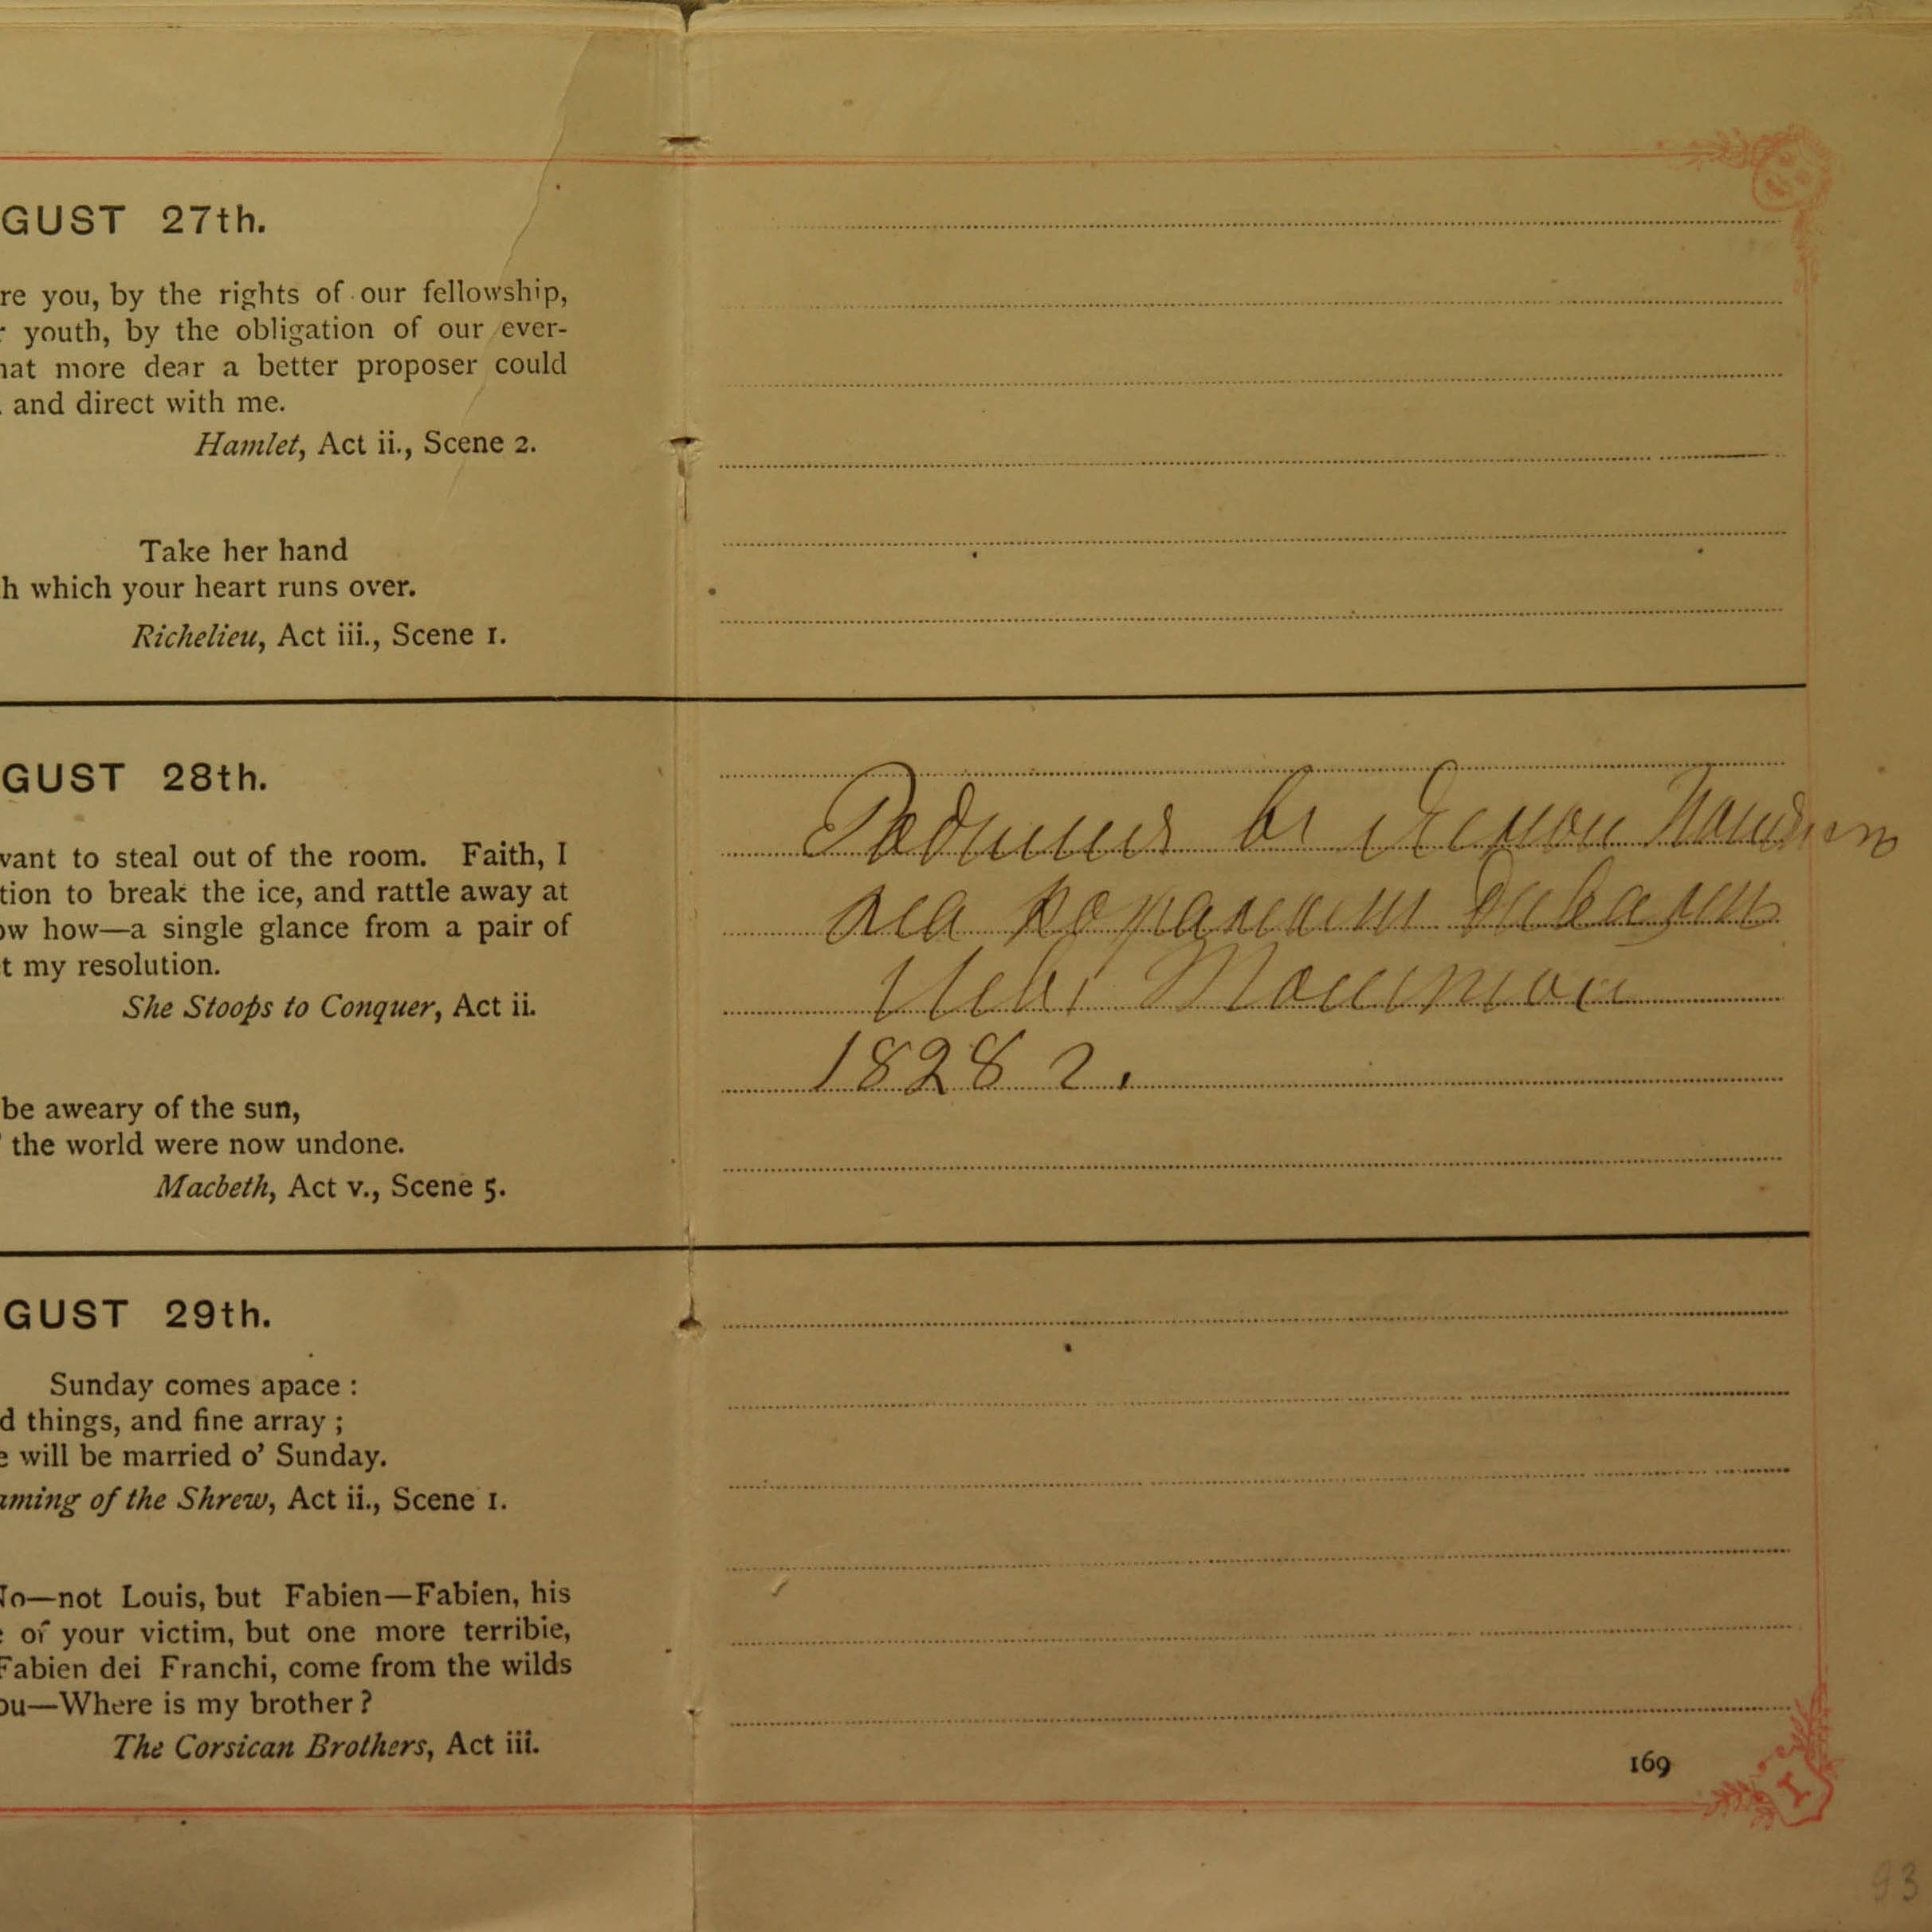 GUST 27th.
re you, by the rights of our fellowship,
r youth, by the obligation of our ever-
hat more dear a better proposer could
and direct with me.
Hamlet, Act ii., Scene 2.
Take her hand
h which your heart runs over.
Richelieu, Act iii., Scene 1.
GUST 28th.
vant to steal out of the room. Faith, I
tion to break the ice, and rattle away at
ow how—a single glance from a pair of
t my resolution.
She Stoops to Conquer, Act ii.
be aweary of the sun,
the world were now undone.
Macbeth, Act v., Scene 5.
GUST 29th.
Sunday comes apace :
d things, and fine array ;
e will be married o' Sunday.
aming of the Shrew, Act ii., Scene 1.
No—not Louis, but Fabien—Fabien, his
e of your victim, but one more terrible,
Fabien dei Franchi, come from the wilds
ou—Where is my brother ?
The Corsican Brothers, Act iii.
Родился въ Ясной Полянѣ
на кожаном диванѣ
Левъ Толстой
1828 г.
169
93